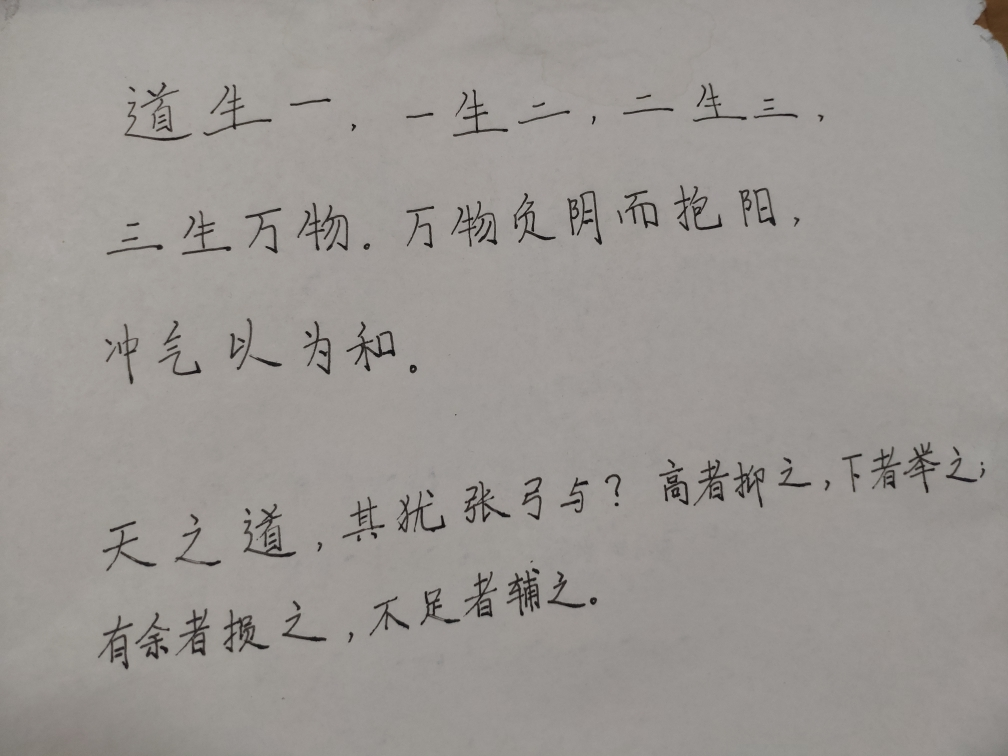 道生一，一生二，二生三，
三生万物。万物负阴而抱阳，
冲气以为和。
天之道，其犹张弓与？高者抑之，下者举之；
有余者损之，不足者辅之。